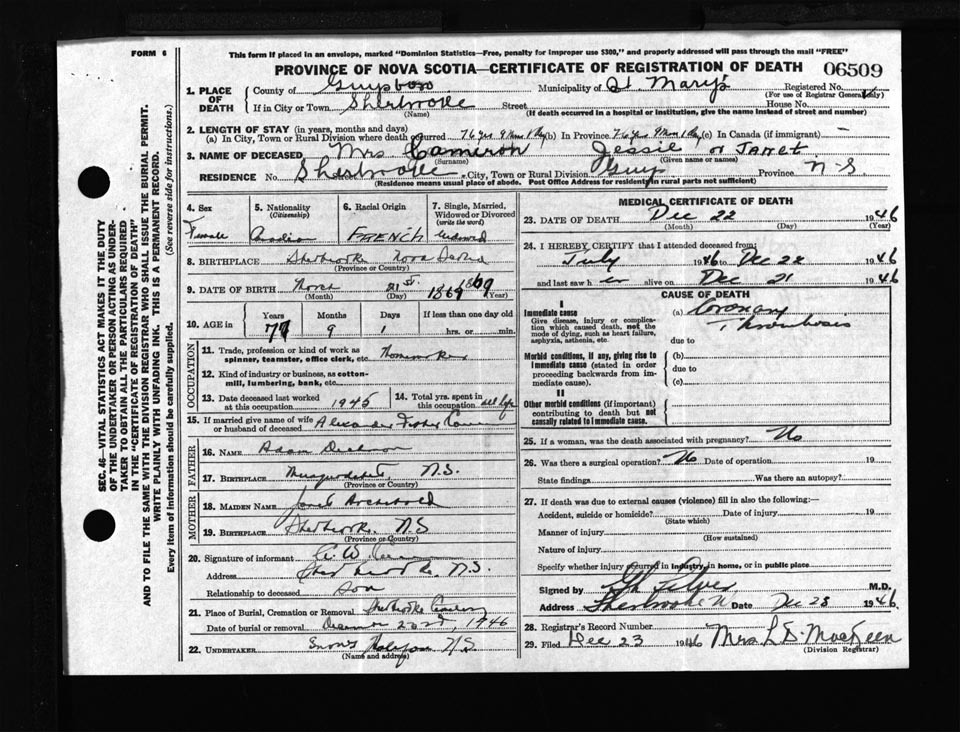 FORM 6
This form if placed in an envelope, marked "Dominion Statistics—Free, penalty for improper use $300," and properly addressed will pass through the mail "FREE"
PROVINCE OF NOVA SCOTIA—CERTIFICATE OF REGISTRATION OF DEATH 06509
1. PLACE OF DEATH County of Guysboro Municipality of St. Mary's Registered No.
(For use of Registrar General only)
If in City or Town Sherbrooke Street House No.
(Name) (If death occurred in a hospital or institution, give the name instead of street and number)
2. LENGTH OF STAY (in years, months and days)
(a) In City, Town or Rural Division where death occurred 76 yrs 9 Mons 1 Day (b) In Province 76 yrs 9 Mons 1 Day (c) In Canada (if immigrant) —
3. NAME OF DECEASED Mrs Cameron Jessie or Janet
(Surname) (Given name or names)
RESIDENCE No. Sherbrooke City, Town or Rural Division Guys Province N-S
(Residence means usual place of abode. Post Office Address for residents in rural parts not sufficient)
4. Sex Female
5. Nationality (Citizenship) Canadian
6. Racial Origin FRENCH
7. Single, Married, Widowed or Divorced (write the word) Widowed
8. BIRTHPLACE Sherbrooke Nova Scotia
(Province or Country)
9. DATE OF BIRTH March 21st. 1869 1869
(Month) (Day) (Year)
10. AGE in Years 77 Months 9 Days 1 If less than one day old
hrs. or min.
OCCUPATION
11. Trade, profession or kind of work as spinner, teamster, office clerk, etc. Homemaker
12. Kind of industry or business, as cotton-mill, lumbering, bank, etc.
13. Date deceased last worked at this occupation 1945
14. Total yrs. spent in this occupation all life
15. If married give name of wife or husband of deceased Alexander Fisher Cameron
FATHER
16. NAME Adam
17. BIRTHPLACE Musquodoboit, N.S.
MOTHER
18. MAIDEN NAME Janet Archibald
19. BIRTHPLACE Sherbrooke. N.S
(Province or Country)
20. Signature of informant
Address Sherbrooke, N.S.
Relationship to deceased Son
21. Place of Burial, Cremation or Removal Sherbrooke Cemetery
Date of burial or removal December 23rd, 1946
22. UNDERTAKER Snows Halifax N.S.
(Name and address)
MEDICAL CERTIFICATE OF DEATH
23. DATE OF DEATH Dec 22 1946
(Month) (Day) (Year)
24. I HEREBY CERTIFY that I attended deceased from:
July 1946 to Dec 22 1946
and last saw h er alive on Dec 21 1946
CAUSE OF DEATH
I
Immediate cause (a) Coronary Thrombosis
Give disease, injury or complication which caused death, not the mode of dying, such as heart failure, asphyxia, asthenia, etc.
due to
Morbid conditions, if any, giving rise to immediate cause (stated in order proceeding backwards from immediate cause).
(b)
due to
(c)
II
Other morbid conditions (if important) contributing to death but not causally related to immediate cause.
25. If a woman, was the death associated with pregnancy? No
26. Was there a surgical operation? No Date of operation 19
State findings Was there an autopsy?
27. If death was due to external causes (violence) fill in also the following:—
Accident, suicide or homicide? Date of injury 19
(State which)
Manner of injury
(How sustained)
Nature of injury
Specify whether injury occurred in industry, in home, or in public place
Signed by M.D.
Address Sherbrooke N. Date Dec 23 1946
28. Registrar's Record Number
29. Filed Dec 23 1946 Mrs L D. MacKeen
(Division Registrar)
SEC. 46—VITAL STATISTICS ACT MAKES IT THE DUTY
OF THE UNDERTAKER OR PERSON ACTING AS UNDER-
TAKER TO OBTAIN ALL THE PARTICULARS REQUIRED
IN THE "CERTIFICATE OF REGISTRATION OF DEATH"
AND TO FILE THE SAME WITH THE DIVISION REGISTRAR WHO SHALL ISSUE THE BURIAL PERMIT.
WRITE PLAINLY WITH UNFADING INK. THIS IS A PERMANENT RECORD.
Every item of information should be carefully supplied. (See reverse side for instructions.)